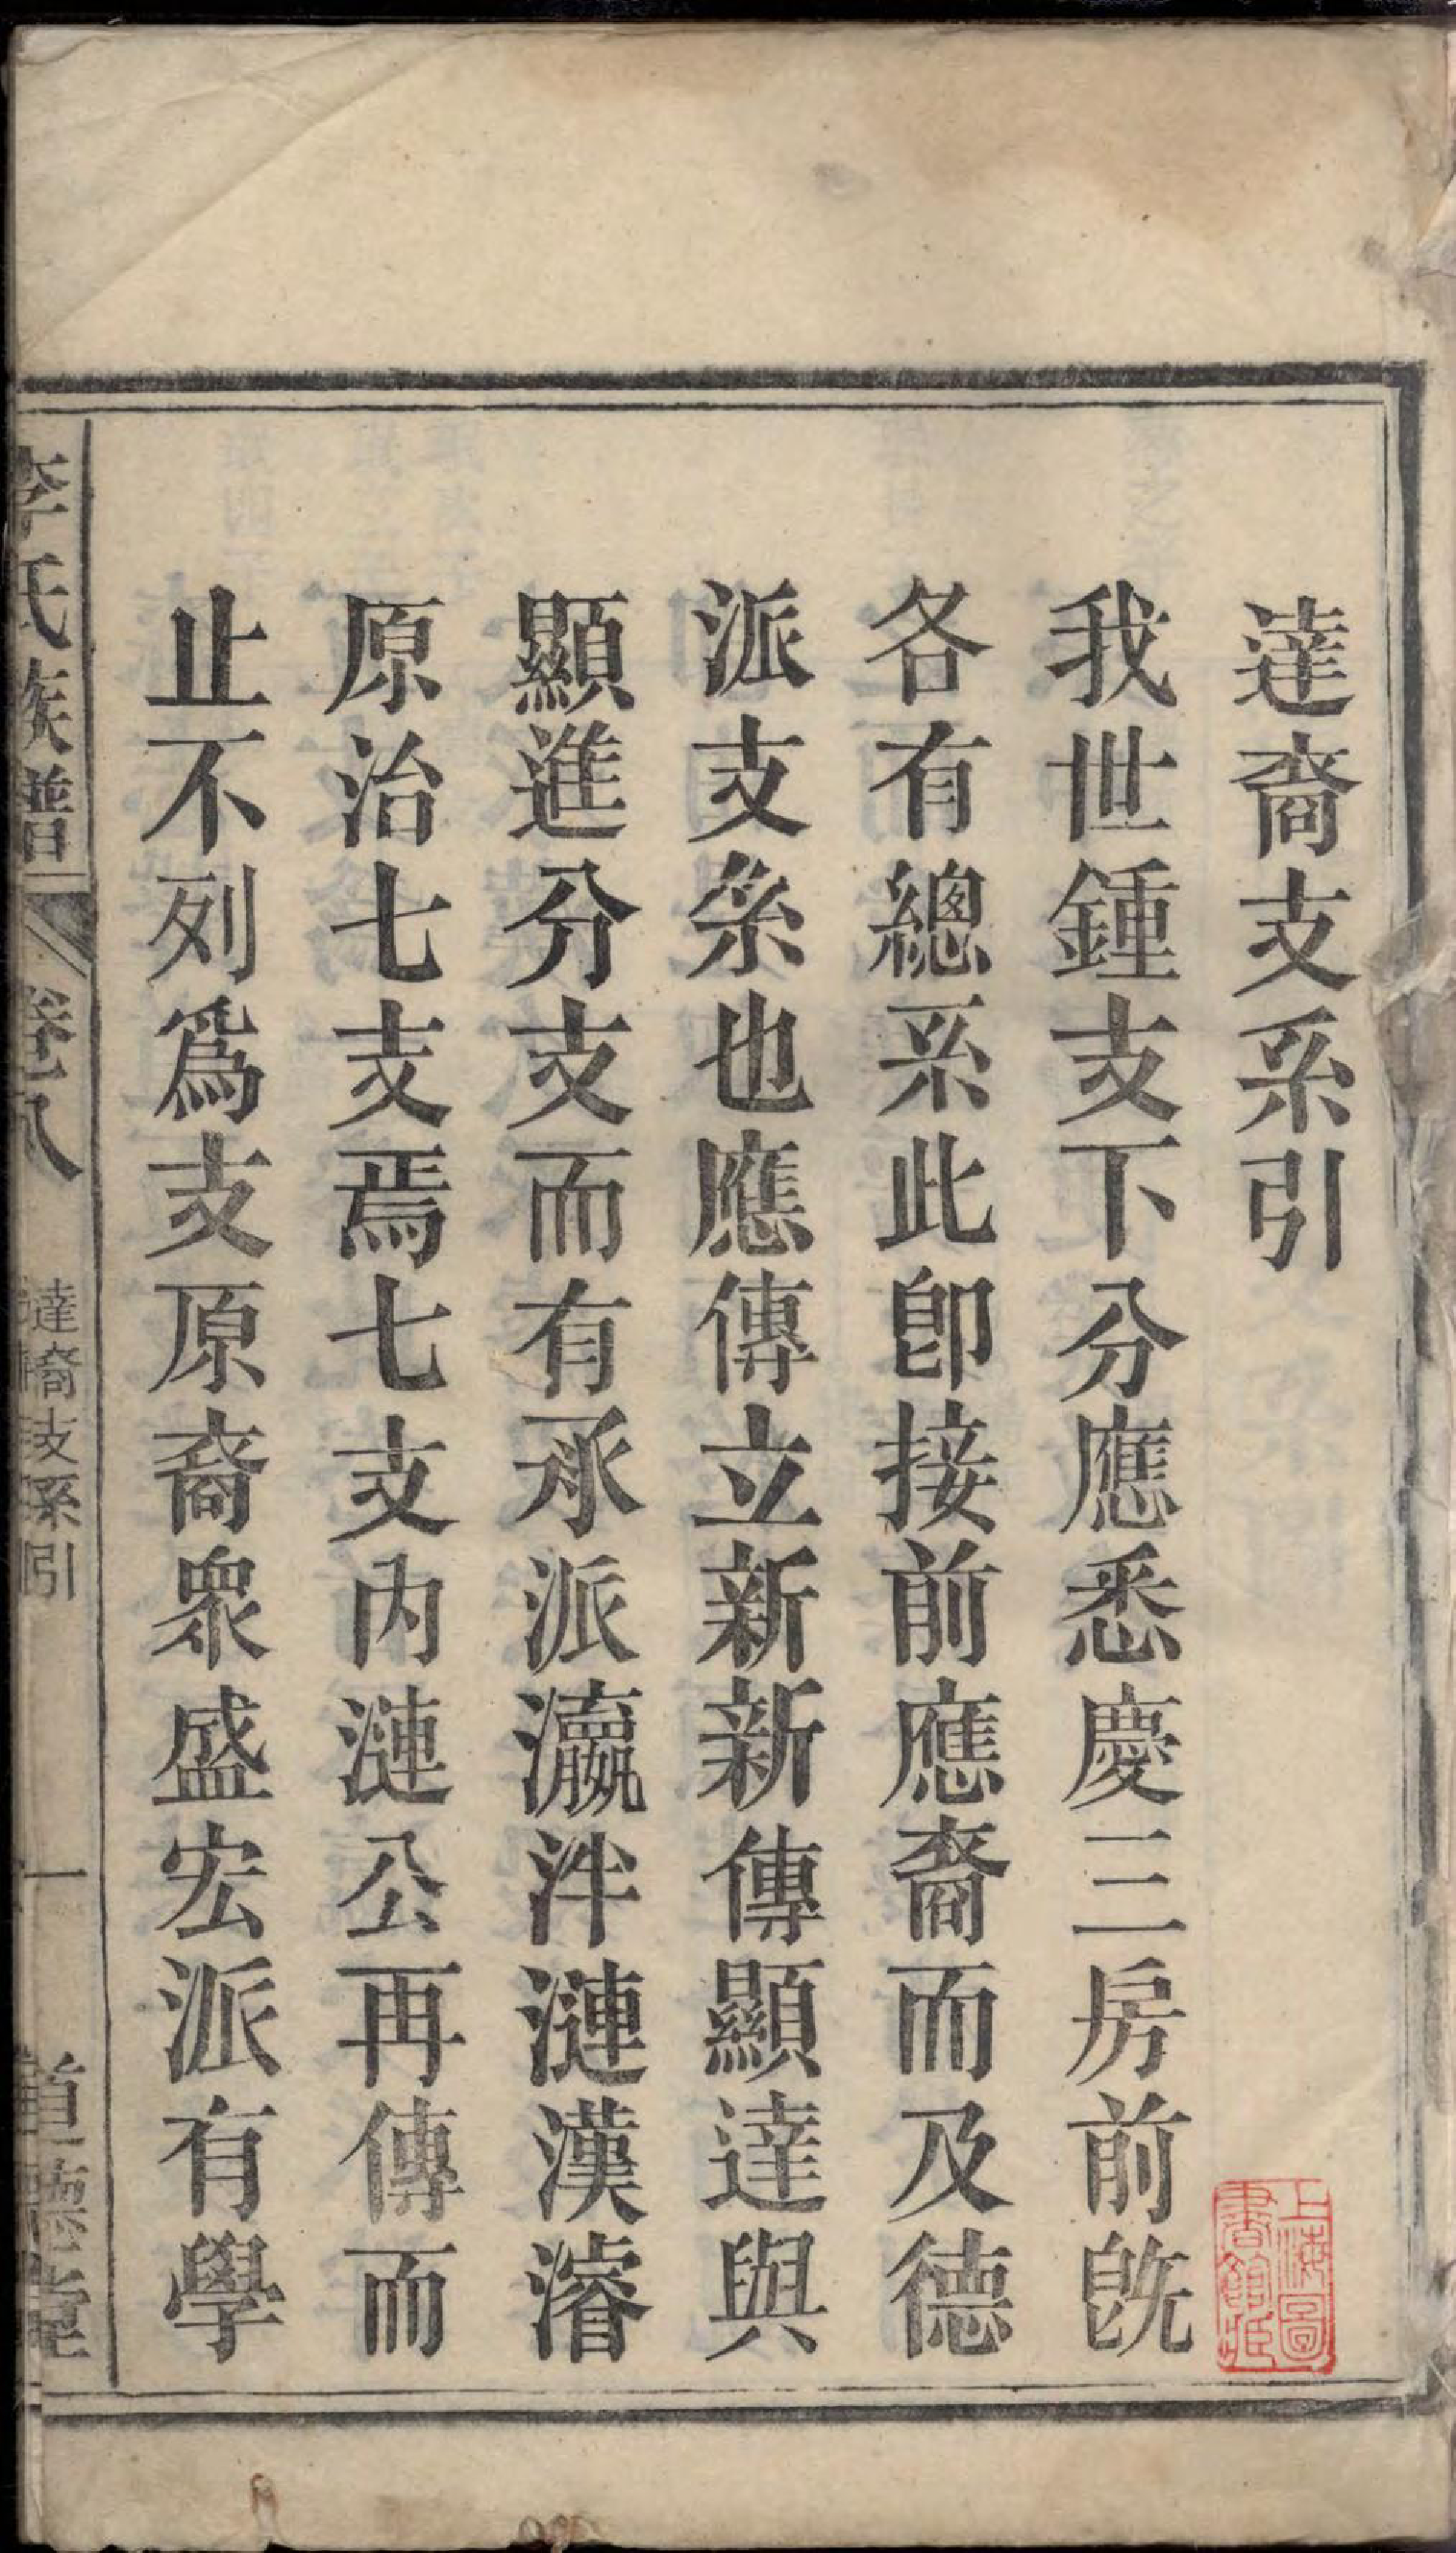 達裔支系引
我世鍾支下分應悉慶三房前旣
各有總系此卽接前應裔而及德
派支系也應傳立新新傳顯達與
顯進分支而有承派瀛泮漣漢濬
原治七支焉七支內漣公再傳而
止不列爲支原裔衆盛宏派有學
李氏族譜 卷八 達裔支系引 一 道德堂
上海圖
書館藏